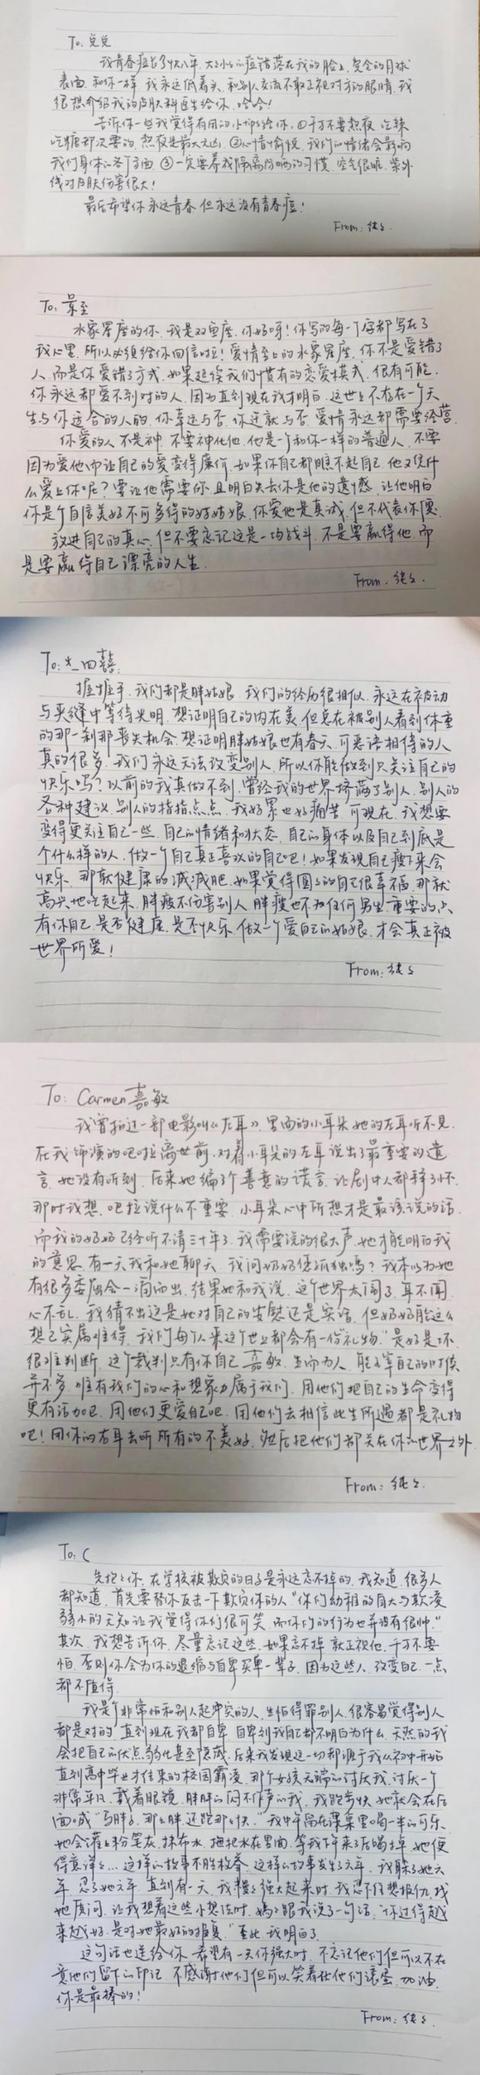 To: 兑兑
我青春痘长了快八年，大大小小的痘错落在我的脸上，完全的月球
表面，和你一样，我永远低着头，和别人交流不敢正视对方的眼睛，我
很想介绍我的皮肤科医生给你，哈哈！
告诉你一些我觉得有用的小tips给你，①千万不要熬夜，吃辣
吃糖都次要的，熬夜是最大元凶，②心情愉悦，我们的情绪会影响
我们身体的各个方面 ③一定要养成隔离防晒的习惯，空气很脏，紫外
线对皮肤伤害很大！
最后希望你永远青春，但永远没有青春痘！
From: 纯纯
To: 景至
水象星座的你，我是双鱼座，你好呀！你写的每一个字都写在了
我心里，所以必须给你回信啦！爱情至上的水象星座，你不是爱错了
人，而是你爱错了方式，如果延续我们惯有的恋爱模式，很有可能，
你永远都爱不到对的人，因为直到现在我才明白，这世上不存在一个天
生与你适合的人的，你幸运与否，你迁就与否，爱情永远都需要经营。
你爱的人不是神，不要神化他，他是个和你一样的普通人，不要
因为爱他而让自己的爱变得廉价，如果你自己都瞧不起自己，他又凭什
么爱上你呢？要让他需要你，且明白失去你是他的遗憾，让他明白
你是个自信美好不可多得的好姑娘，你爱他是真诚，但不代表你傻
放进自己的真心，但不要忘记这是一场战斗，不是要赢得他，而
是要赢得自己漂亮的人生。
From: 纯纯
To: 尤四囍
握握手，我们都是胖姑娘，我们的经历很相似，永远在被动
与夹缝中等待光明，想证明自己的内在美，但总在被别人看到体重
的那一刹那丧失机会，想证明胖姑娘也有春天，可恶语相待的人
真的很多，我们永远无法改变别人，所以你能做到只关注自己的
快乐吗？以前的我真做不到，曾经我的世界挤满了别人，别人的
各种建议，别人的指指点点，我好累也好痛苦，可现在，我想要
变得更关注自己一些，自己的情绪和状态，自己的身体以及自己到底是
个什么样的人，做一个自己真正喜欢的自己吧！如果发现自己瘦下来会
快乐，那就健康的减减肥，如果觉得圆圆的自己很幸福，那就
高兴地吃起来，胖瘦不伤害别人，胖瘦也不为任何男生，重要的只
有你自己是否健康，是否快乐，做一个爱自己的姑娘，才会真正被
世界所爱！
From: 纯纯
To: Carmen嘉敏
我曾拍过一部电影叫《左耳》，里面的小耳朵她的左耳听不见，
在我饰演的吧啦离世前，对着小耳朵的左耳说出了最重要的遗
言，她没有听到，后来她编了个善意的谎言，让剧中人都释了怀，
那时我想，吧啦说什么不重要，小耳朵心中所想才是最该说的话，
而我的奶奶已经听不清三十年了，我需要说的很大声，她才能明白我
的意思，有一天我和她聊天，我问奶奶你孤独吗？我本以为她
有很多委屈会一涌而出，结果她和我说，这个世界太闹了，耳不闻，
心不乱，我猜不出这是她对自己的安慰还是实话，但奶奶能这么
想已实属难得，我们每个人来这个世上都会有一份礼物，是好是坏
很难判断，这个裁判只有你自己，嘉敏，生而为人，能主宰自己的时候
并不多，唯有我们的心和想象力属于我们，用他们把自己的生命变得
更有活力吧，用他们更爱自己吧，用他们去相信此生所遇都是礼物
吧！用你的右耳去听所有的不美好，然后把他们都关在你的世界之外
From: 纯纯
To: C
先抱抱你，在学校被欺负的日子是永远忘不掉的，我知道，很多人
都知道，首先要替你反击一下欺负你的人“你们幼稚的自大与欺凌
弱小的无知让我觉得你们很可笑，而你们的行为也并没有很帅。”
其次，我想告诉你，尽量忘记这些，如果忘不掉，就正视他，千万不要
怕，否则你会为你的退缩与自卑买单一辈子，因为这些人，改变自己一点
都不值得。
我是个非常怕和别人起冲突的人，生怕得罪别人，很容易觉得别人
都是对的，直到现在我都自卑，自卑到我自己都不明白为什么，天然的我
会把自己的优点弱化甚至隐藏，后来我发现这一切都源于我从初中开始
直到高中毕业才结束的校园霸凌，那个女孩无端的讨厌我，讨厌一个
非常平凡，戴着眼镜，胖胖的闷不作声的我，我跑步快，她就会在后
面喊“马胖子，那么胖还跑那么快。”我中午留在课桌里喝一半的可乐，
她会灌上粉笔灰，抹布水，拖把水在里面，等我下午来了后喝掉，她便
得意洋洋…这样的故事不胜枚举，这样的故事发生了六年，我躲了她六
年，忍了她六年，直到有一天，我慢慢强大起来时，我忍不住想报仇，找
她质问，让我想着这些小想法时，妈妈跟我说了一句话，“你过得越
来越好，是对她最好的报复。”至此，我明白了。
这句话也送给你，希望有一天你强大时，不忘记他们但可以不在
意他们留下的印记，不感谢他们但可以笑着在他们滚蛋，加油，
你是最棒的！
From: 纯纯